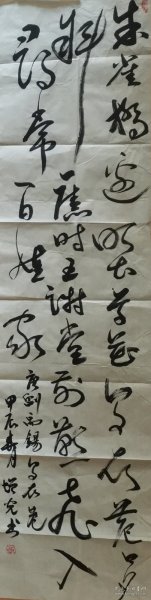 朱雀桥边野草花乌衣巷口
斜旧时王谢堂前燕飞入
寻常百姓家
唐刘禹锡乌衣巷
甲辰春月
书